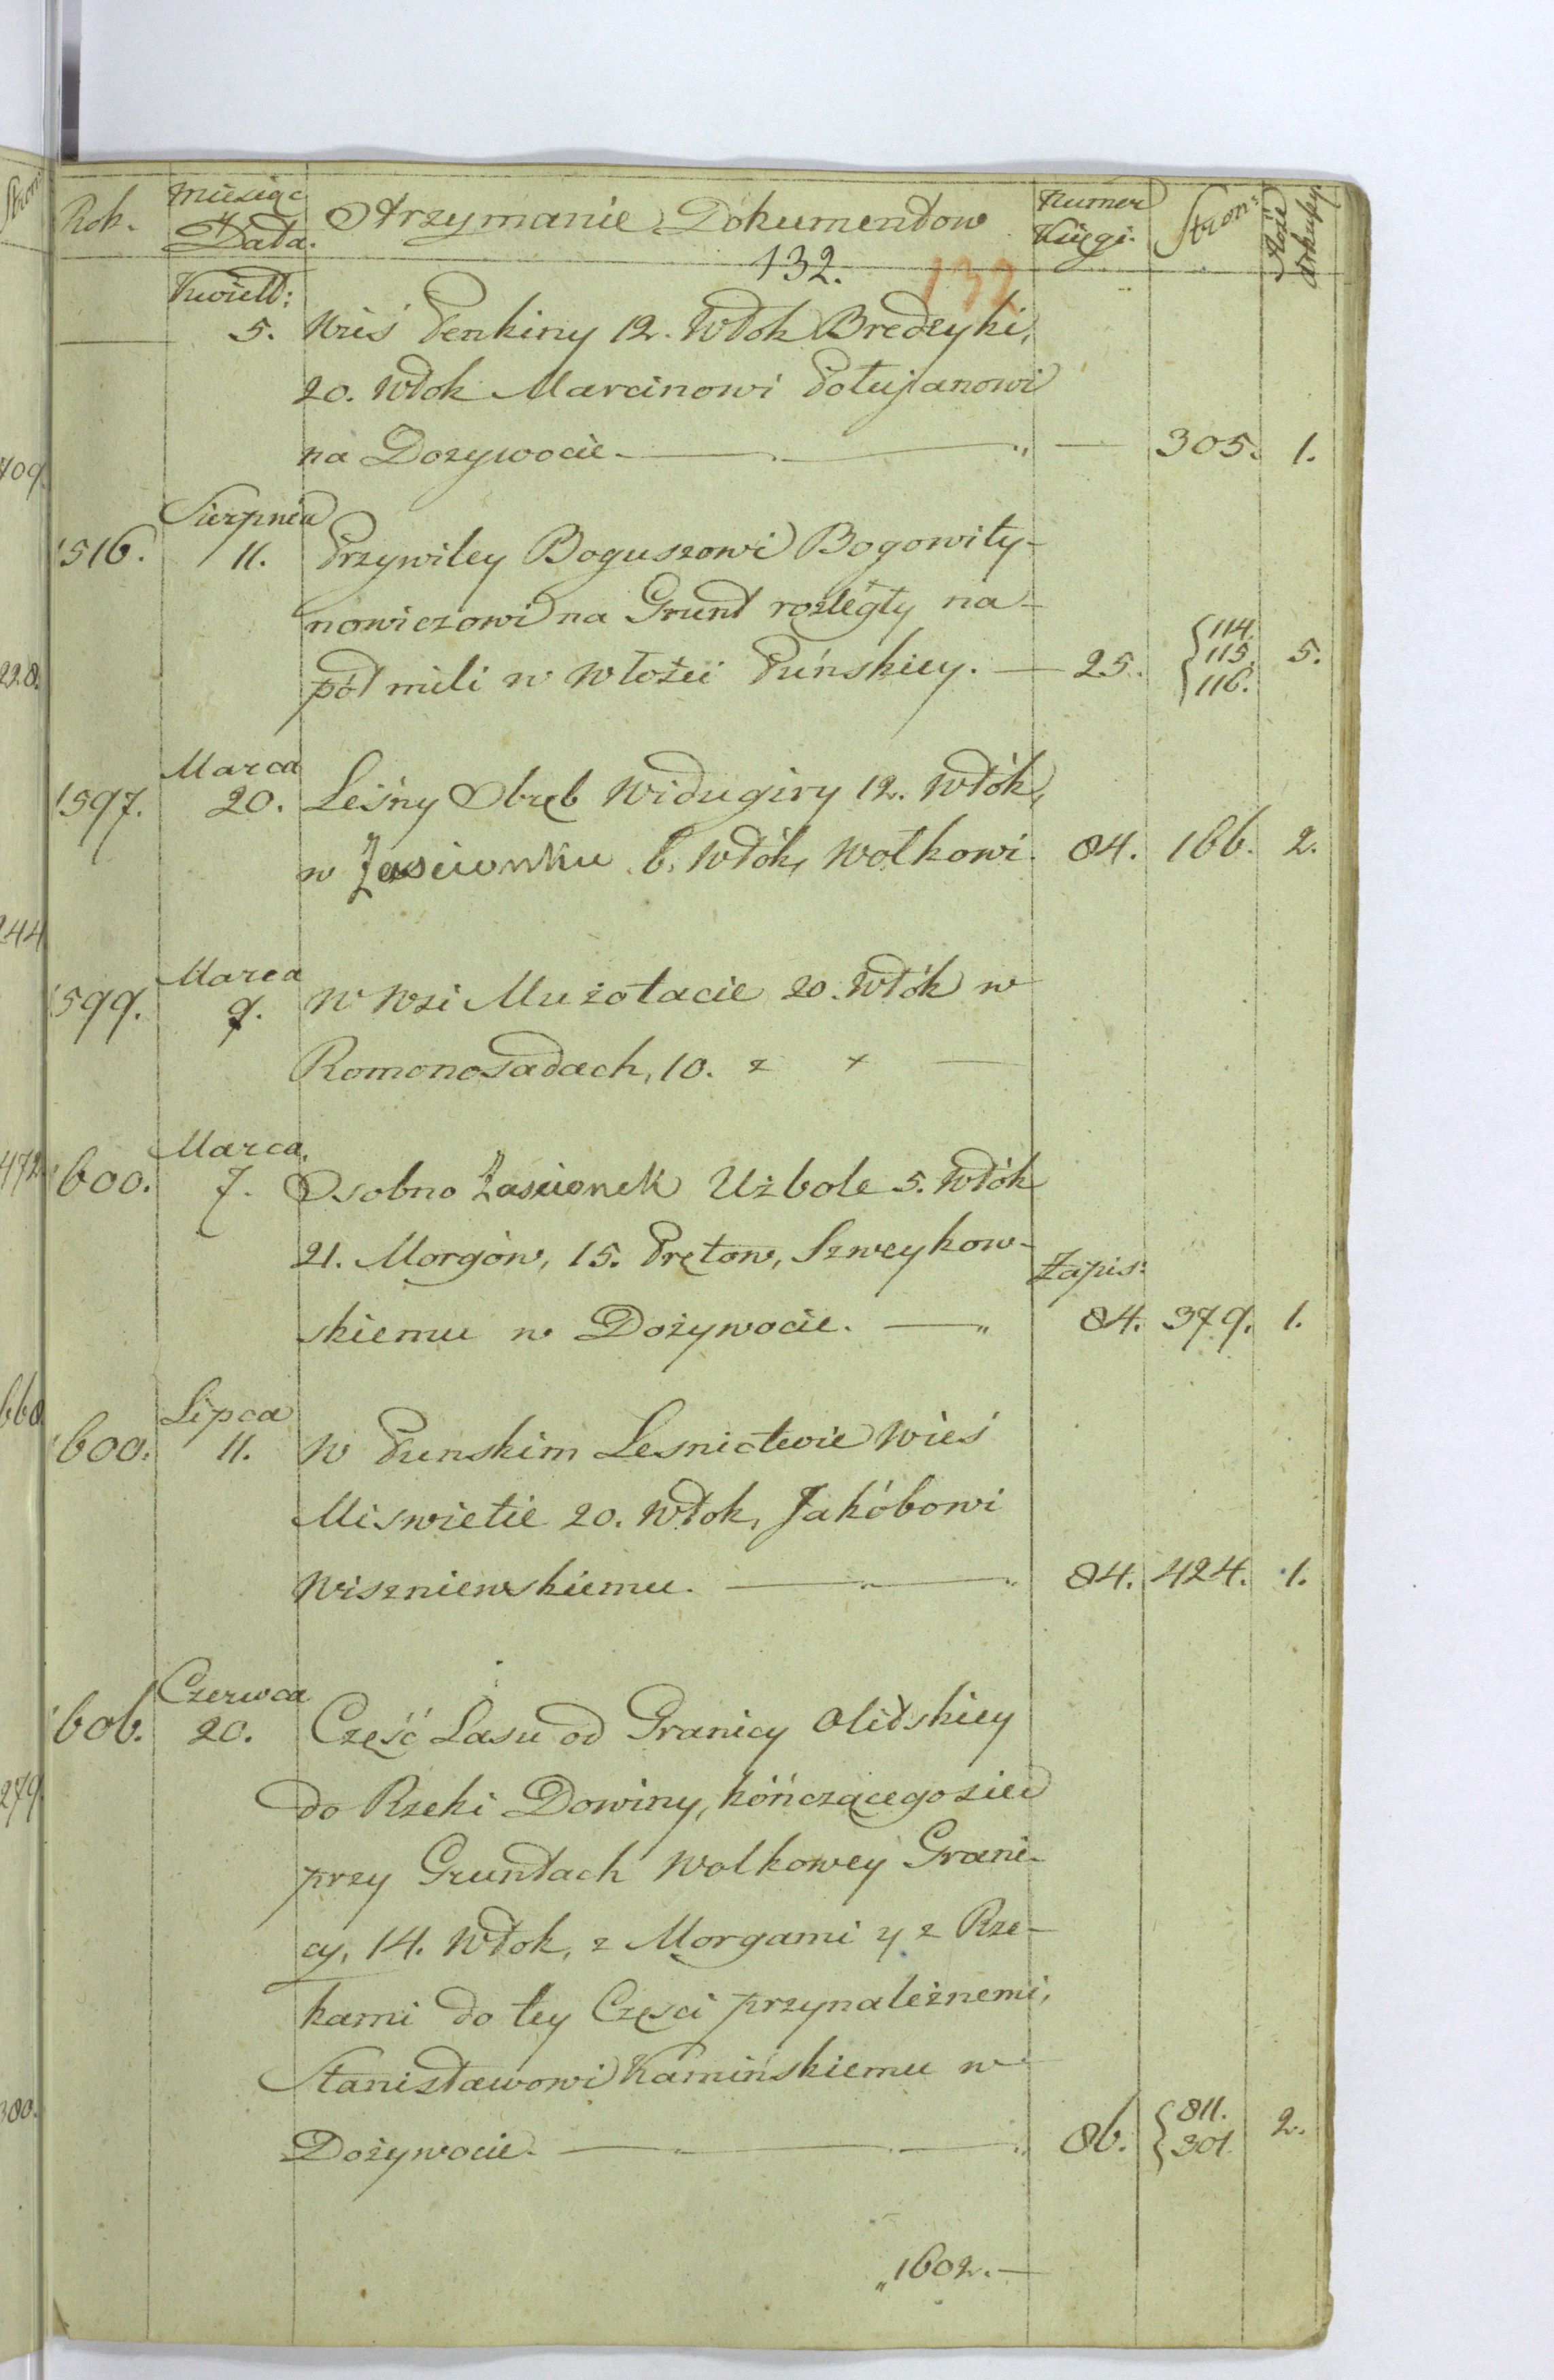 Rok. Miesiąc Data. Otrzymanie Dokumentow Numer Księgi. Stron: Ilość Arkuszy
132. 132
Kwiett:
5. Wieś Penkiny 12. Włok Bredzyki,
20. Włok Marcinowi Połujanowi
na Dozywocie — 305. 1.
Sierpnia
1516. 11. Przywiley Boguszowi Bogowity-
nowiczowi na Grunt rozległy na
pół mili w Włości Puńskiey. — 25. {114. 115. 116. 5.
Marca
1597. 20. Leśny Obręb Widugiry 12. Włók,
w Zascionku 6. Włók, Wołkowi. 84. 166. 2.
Marca
1599. 9. W Wsi Mużołacie 20. Włók w
Romonosadach, 10. z + —
Marca.
1600. 7. Osobno Zascionek Użbole 5. Włók
21. Morgów, 15. Prętow, Szweykow-
Zapis:
skiemu w Dożywocie. — 84. 379. 1.
Lipca
1600. 11. W Punskim Lesnictwie Wieś
Miswietie 20. Włok, Jakóbowi
Wiszniewskiemu. — 84. 424. 1.
Czerwca
1606. 20. Część Lasu od Granicy Olitskiey
do Rzeki Dowiny, kończącego sie
przy Gruntach Wolkowey Grani-
cy, 14. Włok, z Morgami y z Rze-
kami do tey Częsci przynależnemi,
Stanisławowi Kamińskiemu w
Dożywocie. — 86. {811. 301. 2.
„1602.—
409.
228.
244
472
660
279
300.